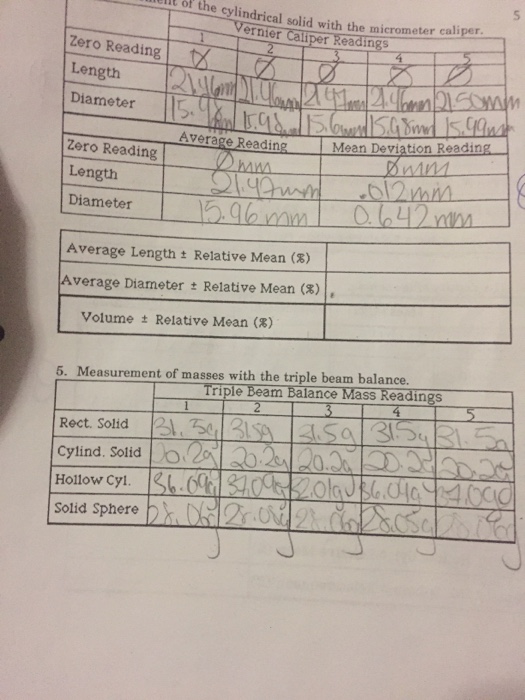 5
of the cylindrical solid with the micrometer caliper.
Vernier Caliper Readings
1 2 3 4 5
Zero Reading Ø Ø Ø Ø Ø
Length 21.46mm 21.46mm 21.47mm 21.46mm 21.50mm
Diameter 15.98mm 15.98mm 15.98mm 15.99mm
Average Reading Mean Deviation Reading
Zero Reading Ømm Ømm
Length 21.47mm .012mm
Diameter 15.96 mm 0.642 mm
Average Length ± Relative Mean (%)
Average Diameter ± Relative Mean (%)
Volume ± Relative Mean (%)
5. Measurement of masses with the triple beam balance.
Triple Beam Balance Mass Readings
1 2 3 4 5
Rect. Solid 31.5g 31.5g 31.5g 31.5g 31.5g
Cylind. Solid 20.2g 20.2g 20.2g 20.2g 20.2g
Hollow Cyl.
Solid Sphere 28.06g 28.05g